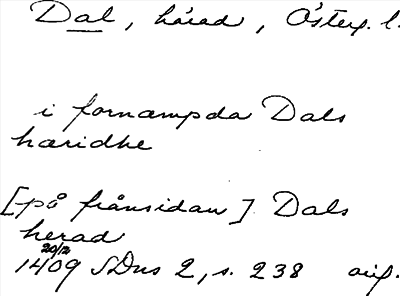 Dal, härad, Österg. l.
i fornæmpda Dals
hæridhe
[på frånsidan] Dals
herad
20/2
1409 SDns 2, s. 238 orig.